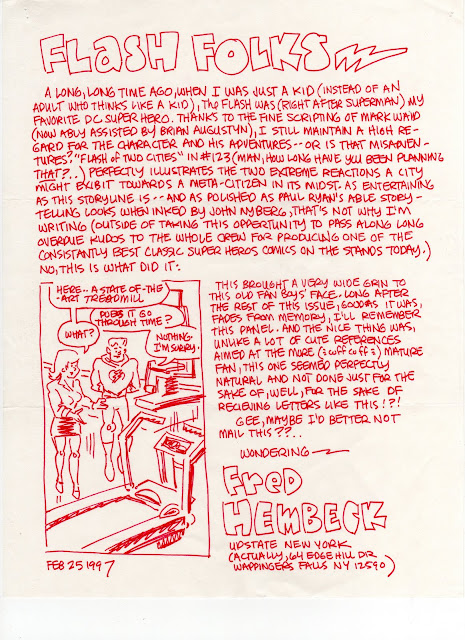 FLASH FOLKS
A LONG, LONG TIME AGO, WHEN I WAS JUST A KID (INSTEAD OF AN
ADULT WHO THINKS LIKE A KID), The FLASH WAS (RIGHT AFTER SUPERMAN) MY
FAVORITE DC SUPER HERO. THANKS TO THE FINE SCRIPTING OF MARK WAID
(NOW ABLY ASSISTED BY BRIAN AUGUSTYN), I STILL MAINTAIN A HIGH RE-
GARD FOR THE CHARACTER AND HIS ADVENTURES -- OR IS THAT MISADVEN-
TURES? "FLASH OF TWO CITIES" IN #123 (MAN, HOW LONG HAVE YOU BEEN PLANNING
THAT?..) PERFECTLY ILLUSTRATES THE TWO EXTREME REACTIONS A CITY
MIGHT EXIBIT TOWARDS A META-CITIZEN IN ITS MIDST. AS ENTERTAING
AS THIS STORYLINE IS -- AND AS POLISHED AS PAUL RYAN'S ABLE STORY-
TELLING LOOKS WHEN INKED BY JOHN NYBERG, THAT'S NOT WHY I'M
WRITING (OUTSIDE OF TAKING THIS OPPORTUNITY TO PASS ALONG LONG
OVERDUE KUDOS TO THE WHOLE CREW FOR PRODUCING ONE OF THE
CONSISTANTLY BEST CLASSIC SUPER HEROS COMICS ON THE STANDS TODAY.)
NO, THIS IS WHAT DID IT:
HERE.. A STATE-OF-THE
-ART TREADMILL
DOES IT GO
THROUGH TIME?
WHAT?
NOTHING.
I'M SORRY.
THIS BROUGHT A VERY WIDE GRIN TO
THIS OLD FAN BOYS' FACE. LONG AFTER
THE REST OF THIS ISSUE, GOOD AS IT WAS,
FADES FROM MEMORY, I'LL REMEMBER
THIS PANEL. AND THE NICE THING WAS,
UNLIKE A LOT OF CUTE REFERENCES
AIMED AT THE MORE (: cuff cuff :) MATURE
FAN, THIS ONE SEEMED PERFECTLY
NATURAL AND NOT DONE JUST FOR THE
SAKE OF, WELL, FOR THE SAKE OF
RECIEVING LETTERS LIKE THIS!?!
GEE, MAYBE I'D BETTER NOT
MAIL THIS??..
WONDERING
FRED
HEMBECK
UPSTATE NEW YORK
(ACTUALLY, 64 EDGE HILL DR
WAPPINGERS FALLS NY 12590)
FEB 25 1997